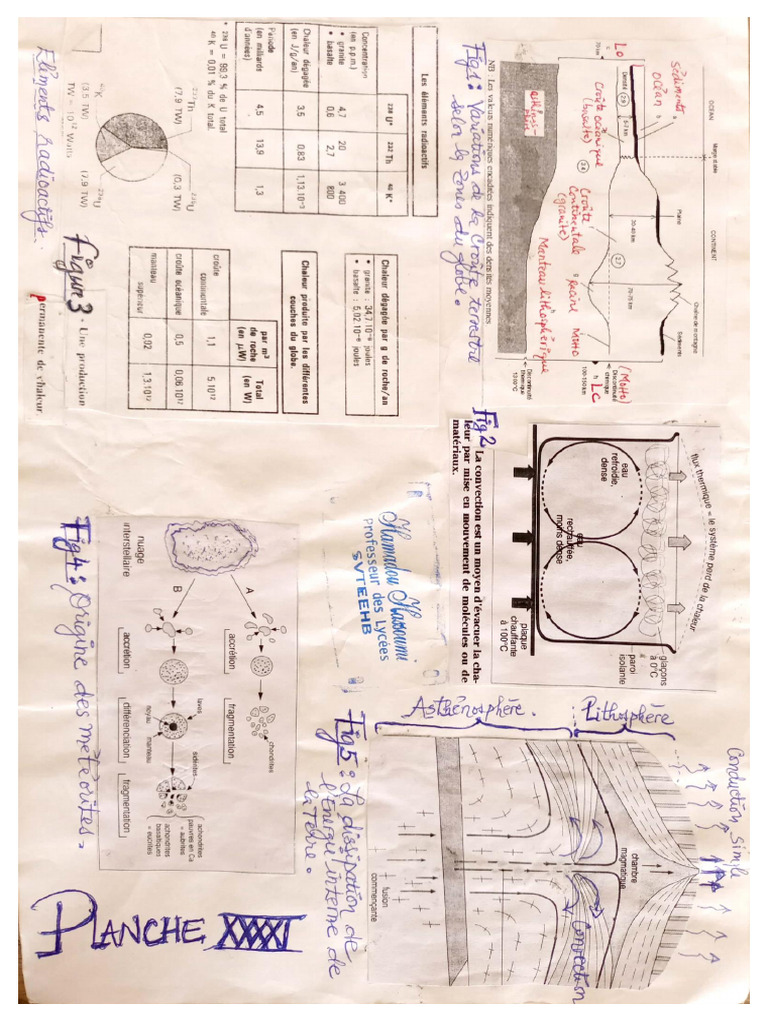 OCEAN
Marge stable
CONTINENT
Plaine
Chaîne de montagne
Sédiments
sédiments
océan
Lo
70 km
Densité
2.9
5-7 km
Croûte océanique
(basalte)
2.8
Croûte
Continentale
(granite)
30-40 km
2.7
70-75 km
(Moho)
Discontinuité
chimique
Lc
100-150 km
Discontinuité
thermique
1300°C
asthénos-
phère
Manteau lithosphérique
Moho
NB : Les valeurs numériques encadrées indiquent des densités moyennes
Fig1 : Variations de la Croûte terrestre
selon la zones du globe.
Les éléments radioactifs
238 U* 232 Th 40 K*
Concentration
(en p.p.m.)
• granite 4,7 20 3 400
• basalte 0,6 2,7 800
Chaleur dégagée
(en J/g/an) 3,5 0,83 1,13.10⁻³
Période
(en milliards
d'années) 4,5 13,9 1,3
* 238 U = 99,3 % de U total
40 K = 0,01 % du K total.
Chaleur dégagée par g de roche/an
• granite : 34,7 10⁻⁸ joules
• basalte : 5,02 10⁻⁸ joules
Chaleur produite par les différentes
couches du globe.
par m³
de roche
(en µW)
Total
(en W)
croûte
continentale 1,1 5.10¹²
croûte océanique 0,5 0,06.10¹²
manteau
supérieur 0,02 1,3.10¹²
232Th
(7,9 TW)
235U
(0,3 TW)
40K
(3,5 TW)
238U
(7,9 TW)
TW = 10¹² Watts
Eléments radioactifs.
Figure 3 • Une production
permanente de chaleur
flux thermique = le système perd de la chaleur
glaçons
à 0°C
paroi
isolante
eau
refroidie,
dense
eau
réchauffée,
moins dense
plaque
chauffante
à 100°C
Fig 2 La convection est un moyen d'évacuer la cha-
leur par mise en mouvement de molécules ou de
matériaux.
Hamadou Hassoumi
Professeur des Lycées
SVTEEHB
nuage
interstellaire
A
B
accrétion
fragmentation
chondrites
accrétion
différenciation
fragmentation
noyau
manteau
laves
sidérites
achondrites
pauvres en Ca
= aubrites
achondrites
basaltiques
= eucrites
Fig4 : Origine des météorites.
Conduction simple
Lithosphère
Asthénosphère.
chambre
magmatique
Convection
+ fusion
commençante
Fig5 : La dissipation de
l'Energie interne de
la Terre.
PLANCHE XXXXI